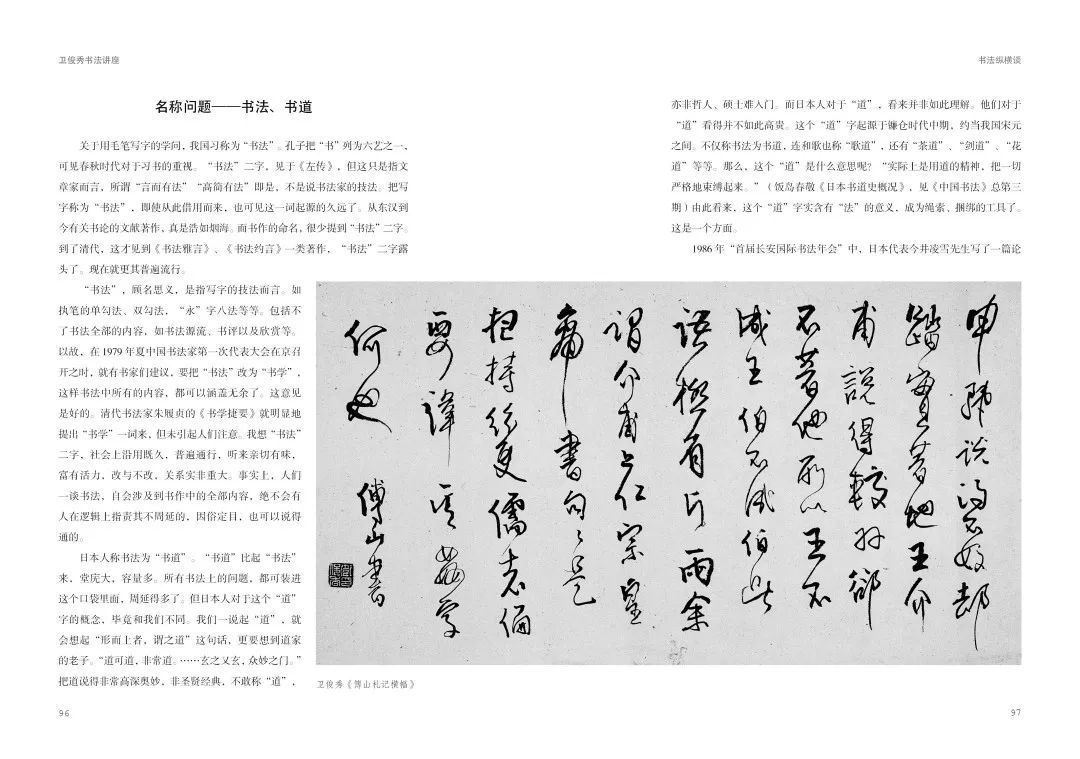 卫俊秀书法讲座
名称问题——书法、书道
关于用毛笔写字的学问，我国习称为“书法”。孔子把“书”列为六艺之一，
可见春秋时代对于习书的重视。“书法”二字，见于《左传》，但这只是指文
章家而言，所谓“言而有法”“高简有法”即是，不是说书法家的技法。把写
字称为“书法”，即使从此借用而来，也可见这一词起源的久远了。从东汉到
今有关书论的文献著作，真是浩如烟海。而书作的命名，很少提到“书法”二字。
到了清代，这才见到《书法雅言》、《书法约言》一类著作，“书法”二字露
头了。现在就更其普遍流行。
“书法”，顾名思义，是指写字的技法而言。如
执笔的单勾法、双勾法，“永”字八法等等。包括不
了书法全部的内容，如书法源流、书评以及欣赏等。
以故，在1979年夏中国书法家第一次代表大会在京召
开之时，就有书家们建议，要把“书法”改为“书学”，
这样书法中所有的内容，都可以涵盖无余了。这意见
是好的。清代书法家朱履贞的《书学捷要》就明显地
提出“书学”一词来，但未引起人们注意。我想“书法”
二字，社会上沿用既久，普遍通行，听来亲切有味，
富有活力，改与不改，关系实非重大。事实上，人们
一谈书法，自会涉及到书作中的全部内容，绝不会有
人在逻辑上指责其不周延的，因俗定目，也可以说得
通的。
日本人称书法为“书道”。“书道”比起“书法”
来，堂庑大，容量多。所有书法上的问题，都可装进
这个口袋里面，周延得多了。但日本人对于这个“道”
字的概念，毕竟和我们不同。我们一说起“道”，就
会想起“形而上者，谓之道”这句话，更要想到道家
的老子。“道可道，非常道。……玄之又玄，众妙之门。”
把道说得非常高深奥妙，非圣贤经典，不敢称“道”，
96
书法纵横谈
亦非哲人、硕士难入门。而日本人对于“道”，看来并非如此理解。他们对于
“道”看得并不如此高贵。这个“道”字起源于镰仓时代中期，约当我国宋元
之间。不仅称书法为书道，连和歌也称“歌道”，还有“茶道”、“剑道”、“花
道”等等。那么，这个“道”是什么意思呢？“实际上是用道的精神，把一切
严格地束缚起来。”（饭岛春敬《日本书道史概况》，见《中国书法》总第三
期）由此看来，这个“道”字实含有“法”的意义，成为绳索、捆绑的工具了。
这是一个方面。
1986年“首届长安国际书法年会”中，日本代表今井凌雪先生写了一篇论
說得不好却
地王介
甫說得較好
不著他所以王不
成王伯不成伯此
語極有斤兩余
謂介甫上仁宗皇
帝一書句句是
把持
要
何也
傅山書
卫俊秀《傅山札记横幅》
97